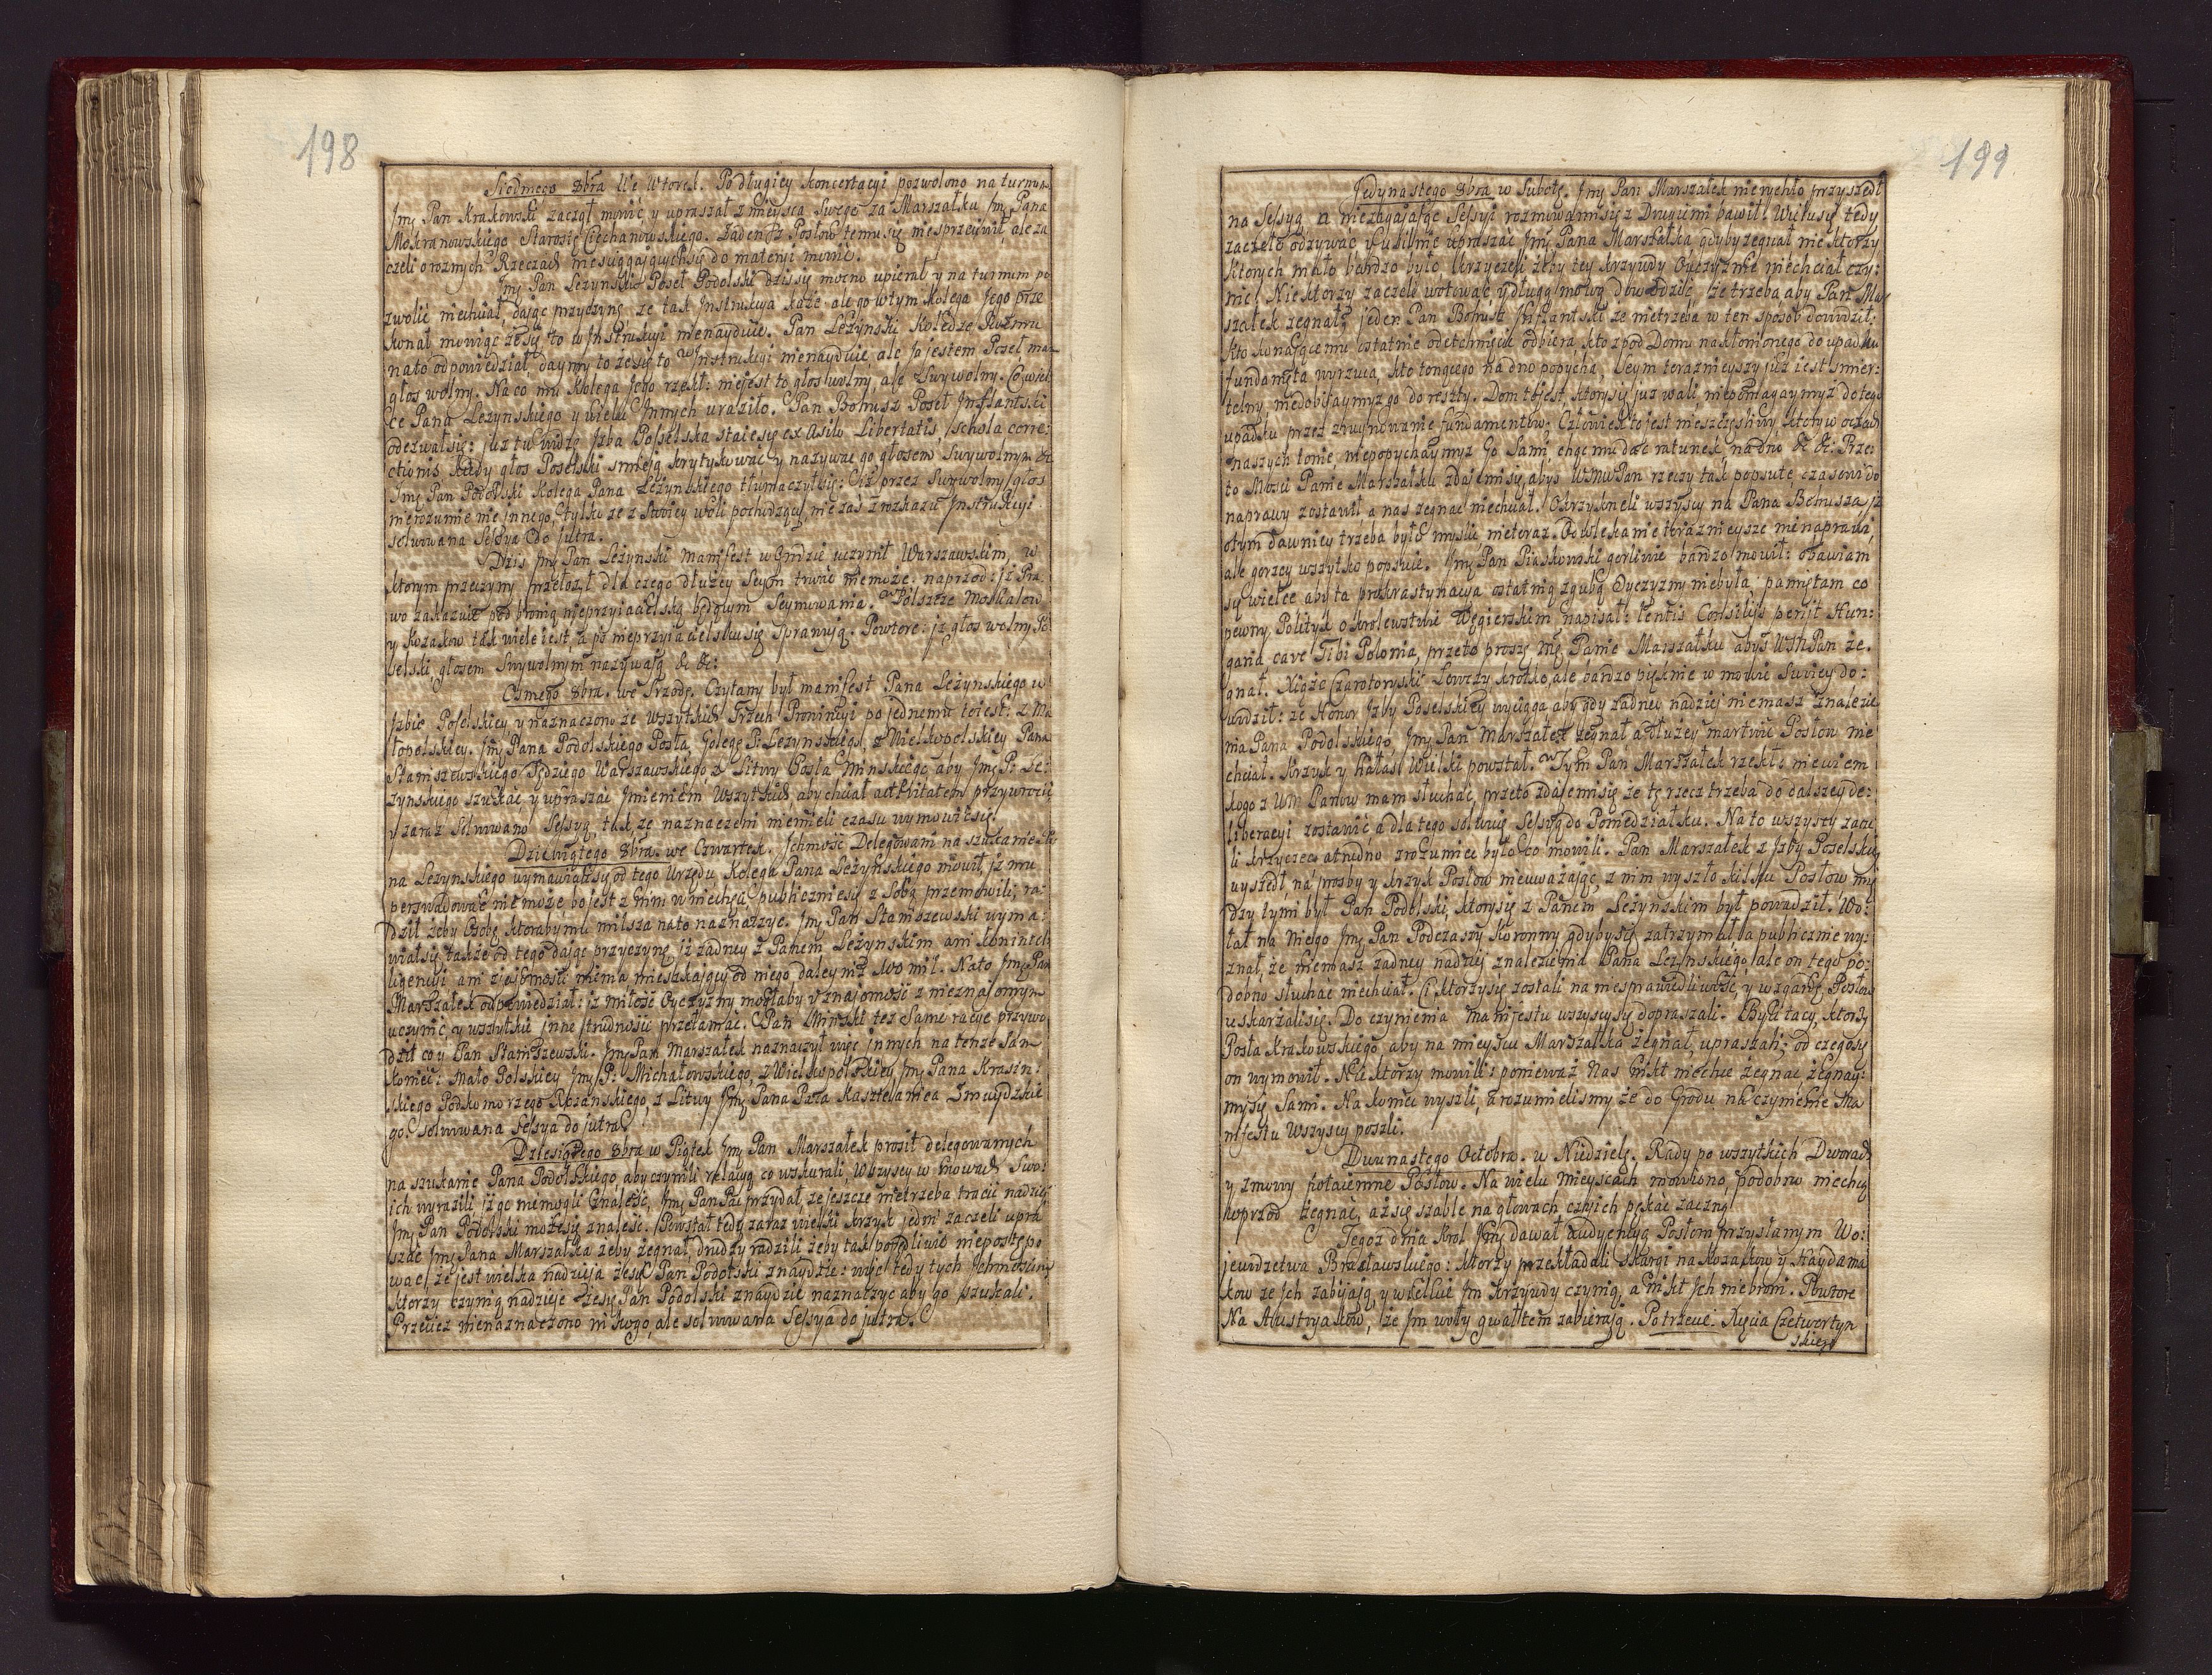 198
Siodmego 8bra We Wtorek. Po długiey koncertacyi pozwolono na turnum
Jmę Pan Krakowski zaczął mowić y upraszał z mieysca Swego za Marszałka Jmę Pana
Mokranowskiego Starostę Ciechanowskiego. Zaden z Posłow temu się niesprzeciwił, ale za
czeli o roznych Rzeczach nie sciągaiących się do materyi mowić.
Jmę Pan Leżynski Poseł Podolski Dziś się mocno upierał y na turnum po
zwolić niechciał, dając przyczynę ze tak Instrukcya każe: ale go w tym Kolega Jego prze
konał mowiąc że się to w Instrukcyi nienayduie. Pan Leżynski Koledze Swemu
na to odpowiedział, daymy to że się to w Instrukcyi nienayduie, ale ja jestem Poseł mam
głos wolny. Na co mu Kolega Jego rzekł: niejest to głos wolny, ale Swywolny. Co wiel
ce Pana Leżynskiego y wielu Innych uraziło. Pan Bohusz Poseł Inflantski
odezwał się: już tu widzę Jzba Poselska staie się ex Asilo Libertatis, schola corre:
ctionis kiedy głos Poselski smieją krytykować y nazywać go głosem Swywolnym &c
Jmę Pan Podolski Kolega Pana Leżynskiego tłumaczył się: Iż przez Swywolny głos
nierozumie nic innego, tylko ze z Swoiey woli pochodzący, nie zaś z rozkazu Instrukcyi.
solwowana Sessya do jutra.
Dziś Jmę Pan Leżynski Manifest w Grodzie uczynił Warszawskim, w
ktorym przyczyny przełożył dla czego dłużey Seym trwać niemoże. naprzod: iż Pra
wo zakazuie pod bronią nieprzyiacielską będącym Seymowania. w Polszcze Moskalow
y Kozakow tak wiele iest, a po nieprzyiacielsku się sprawuią. Powtore: iż głos wolny Po
selski głosem Swywolnym nazywaią &c &c:
Osmego 8bra. we Srzodę. Czytany był manifest Pana Leżynskiego w
Jzbie Poselskiey y naznaczono ze wszytkich Trzech Prowincyi po jednemu to iest: z Ma
łopolskiey. Jmę Pana Podolskiego Posła, Kolegę P: Leżynskiego, z Wielkopolskiey Pana
Staniszewskiego Sędziego Warszawskiego z Litwy Posła Minskiego aby Jmę P: Le:
żynskiego szukać y upraszać Imieniem Wszytkich, aby chciał activitatem przywrocić
y zaraz Solwowano Sessyą, tak ze naznaczeni niemieli czasu wymowić się.
Dziewiątego 8bra. we Czwartek. Ichmość Delegowani na szukanie Pa
na Leżynskiego wymawiali się od tego Urzędu. Kolega Pana Leżynskiego mowił, iż mu
perswadować niemoże bo jest z nim w niechęci y publicznie się z Sobą przemowili; ra:
dził żeby Osobę, ktoraby mu milsza na to naznaczyć. Jmę Pan Staniszewski wyma:
wiał się także od tego dając przyczynę, iż żadney z Panem Leżynskim ani konintel
ligencyi ani znajomości niema mieszkający od niego daley niż 100 mil. Na to Jmę Pan
Marszałek odpowiedział: iż miłość Oyczyzny mogłaby y znajomość z nieznajomym
uczynić, y wszytkie inne trudności przełamać. Pan Minski też same racye przywo
dził co y Pan Staniszewski. Jmę Pan Marszałek naznaczył więc innych na tenże Sam
koniec: z Mało Polskiey Jmę P: Michałowskiego, z Wielkopolskiey Jmę Pana Krasin:
skiego Podkomorzego Rożanskiego, z Litwy Jmę Pana Paca Kasztelanica Zmuydzkie
go. solwowana Sessya do jutra.
Dziesiątego 8bra w Piątek Jmę Pan Marszałek prosił delegowanych
na szukanie Pana Podolskiego aby czynili relacyą co wskurali, Wszyscy w mowach Swo:
ich wyrazili iż go niemogli Znaleść, Jmę Pan Pac przydał, ze jeszcze nietrzeba tracić nadzieij
Jmę Pan Podolski może się znaleść. Powstał tedy zaraz wielki krzyk jedni zaczeli upra
szać Jmę Pana Marszałka żeby żegnał, drudzy radzili żeby tak popędliwie niepostępo
wać, że jest wielka nadzieja że się Pan Podolski znaydzie: więc tedy tych Ichmościow
ktorzy czynią nadzieje że się Pan Podolski znaydzie naznaczyć aby go szukali.
Przecież nienaznaczono nikogo, ale solwowana Sessya do jutra.
199
Jedynastego 8bra w Sobotę. Jmę Pan Marszałek nierychło przyszedł
na Sessyą, a niezagajając Sessyi rozmowami się z Drugimi bawił. Wielu się tedy
zaczeło odzywać y usilnie upraszać Jmę Pana Marszałka gdyby żegnał niektorzy
ktorych mało bardzo było, krzyczeli żeby tey krzywdy Oyczyznie niechciał czy:
nić. Niektorzy zaczeli wotować, y długą mową dowodzić, że trzeba aby Pan Mar
szałek żegnał; jeden Pan Bohusz Inflantski że nietrzeba w ten sposob dowodził:
Kto konaiącemu ostatnie odetchnięcie odbiera, kto z pod Domu nakłonionego do upadku
fundamęta wyrzuca, kto tonącego na dno popycha, Seym teraznieyszy już iest smier:
telny, niedobijaymyż go do reszty. Dom to jest, ktory się już wali, niepomagaymyż do tego
upadku przez zruynowanie fundamentow. Człowiek to jest nieszczęsliwy, ktory w oczach
naszych tonie, niepopychaymyż Go Sami, chcąc mu dać ratunek, na dno &c &c: Prze:
to Mosci Panie Marszałku zda mi się, abyś WMWPan rzeczy tak popsute czasowi do
naprawy zostawił a nas żegnać niechciał. Okrzykneli wszyscy na Pana Bohusza, iż
o tym dawniey trzeba było mysleć nieteraz. Odwlekanie teraznieysze nienaprawi,
ale gorzey wszytko popsuie. Jmę Pan Piaskowski gorliwie bardzo mowił: obawiam
się wielce aby ta prokrastynacya ostatnią zgubą Oyczyzny niebyła; pamiętam co
pewny Polityk o krolewstwie Węgierskim napisał: lentis Consiliis periit Hun:
garia cave Tibi Polonia, przeto proszę Mę Panie Marszałku abyś WMPan że.
gnał. Xiąże Czartoryski Łowczy, krotko, ale bardzo pięknie w mowie Swoiey do:
wodził: że Honor Jzby Poselskiey wyciąga aby gdy żadney nadziej niemasz znalezie
nia Pana Podolskiego, Jmę Pan Marszałek żegnał a dłużey martwić Posłow nie
chciał. Krzyk y hałas wielki powstał. w Tym Pan Marszałek rzekł: niewiem
kogo z WM Panow mam słuchać, przeto zda mi się ze tę rzecz trzeba do dalszey de:
liberacyi zostawić, a dla tego solwuię Sessyą do Poniedziałku. Na to wszyscy zaczę
li krzyczec a trudno zrozumieć było co mowili. Pan Marszałek z Jzby Poselskiej
wyszedł, na prosby y krzyk Posłow nieuważając, z nim wyszło kilku Posłow mię
dzy tymi był Pan Podolski, ktory się z Panem Leżynskim był powadził. Wo:
łał na niego Jmę Pan Podczaszy Koronny, gdyby się zatrzymał, a publicznie wy:
znał, że niemasz żadney nadziej znalezienia Pana Leżynskiego, ale on tego po:
dobno słuchać niechciał. Ci ktorzy się zostali na niesprawiedliwość, y wzgardę Posłow
uskarżali się. Do czynienia Manifestu wszyscy się dopraszali. Byli tacy, ktorzy
Posła Krakowskiego, aby na mieyscu Marszałka żegnał, upraszali; od czego się
on wymowił. Niektorzy mowili: ponieważ Nas nikt niechce żegnać, żegnay:
my się Sami. Na koniec wyszli, a rozumielismy że do Grodu na czynienie Ma
nifestu Wszyscy poszli.
Dwunastego Octobra. w Niedzielę. Rady po wszytkich Dworach
y zmowy potaiemne Posłow. Na wielu mieyscach mowiono, podobno niechcą
wprzod żegnać, aż się szable na głowach czyich pękać zaczną.
Tegoż dnia Krol Jmę dawał audyencyą Posłom przysłanym Wo:
jewodztwa Bracławskiego: ktorzy przekładali Skargi na Kozakow y Haydama
kow ze Jch zabijają, y wselkie Jm krzywdy czynią, a nikt Jch niebroni. Powtore
Na Austryakow, że Jm woły gwałtem zabierają. Potrzecie. Xięcia Czetwertyn
skiego